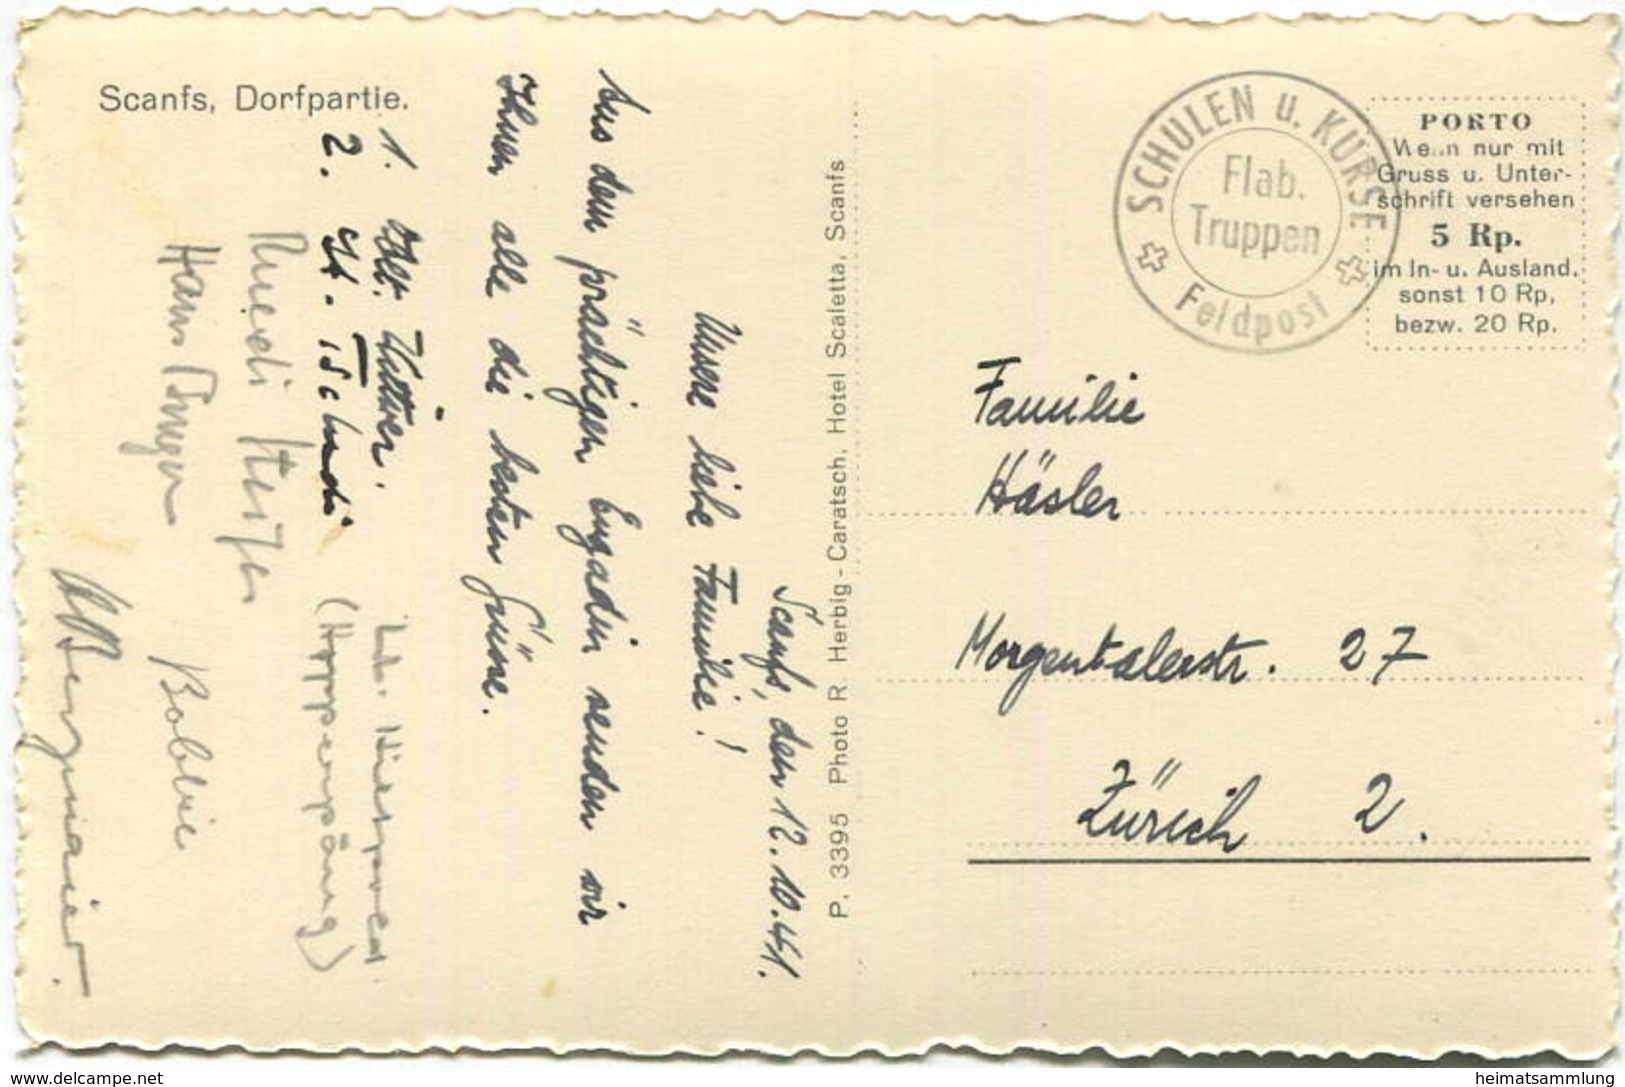 Scanfs, Dorfpartie.
Scanfs, den 12.10.41.
Unsere liebe Familie!
Aus dem prächtigen Engadin senden wir
Ihnen alle die besten Grüsse.
1.
2. H. Tschudi
Ruedi
Hans
Bobbie
P. 3395 Photo R. Herbig-Caratsch, Hotel Scaletta, Scanfs
SCHULEN u. KURSE
Flab.
Truppen
Feldpost
PORTO
Wenn nur mit
Gruss u. Unter-
schrift versehen
5 Rp.
im In- u. Ausland.
sonst 10 Rp,
bezw. 20 Rp.
Familie
Häsler
Morgentalerstr. 27
Zürich 2.
www.delcampe.net
heimatsammlung